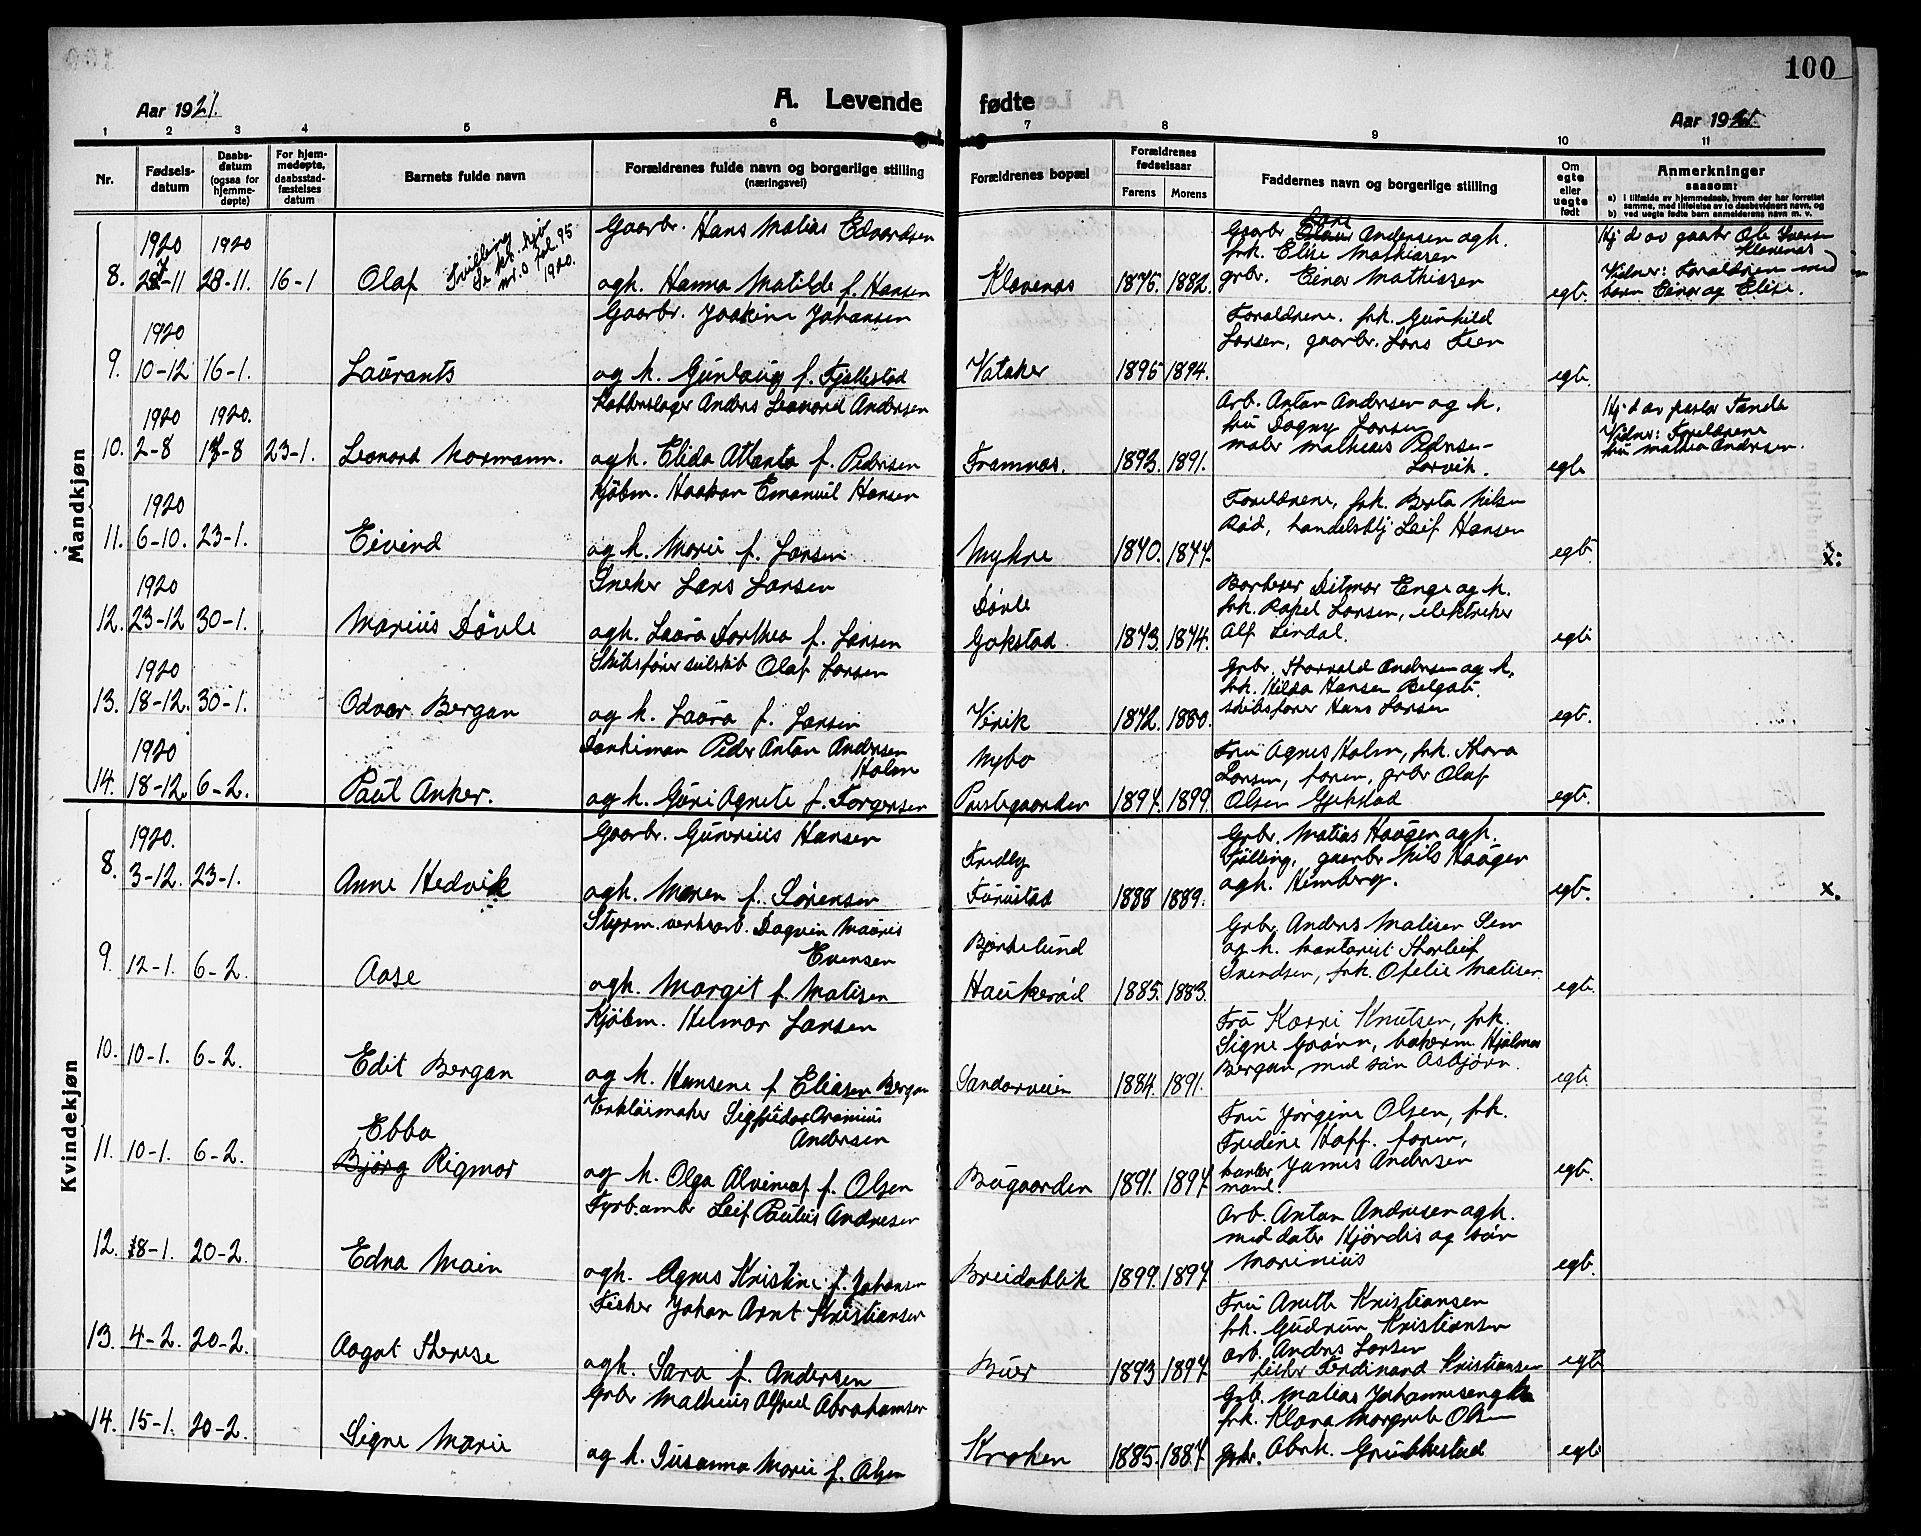 100
Aar 1921.
A. Levende fødte
Aar 1921.
1 2 3 4 5 6 7 8 9 10 11
Nr.
Fødselsdatum
Daabsdatum (ogsaa for hjemmedøpte)
For hjemmedøpte, daabsstadfæstelses datum
Barnets fulde navn
Forældrenes fulde navn og borgerlige stilling (næringsvei)
Forældrenes bopæl
Forældrenes fødselsaar
Farens Morens
Faddernes navn og borgerlige stilling
Om egte eller uegte født
Anmerkninger saasom:
a) i tilfælde av hjemmedaab, hvem der har forrettet samme, med tilføielse av to daabsvidners navn, og
b) ved uegte fødte barn anmelderens navn m. v.
Mandkjøn
1920 1920
8. 28-11 28-11. 16-1
Olaf
Tvilling
Se kv. kjøn
1920.
Gaarbr. Hans Matias Edvardsen
ogh. Hanna Matilde f. Hansen
Klavenæs 1875 1882.
Gaarbr. Andersen ogh.
frk. Elise Mathiasen
grbr. Einar Mathiasen
egt.
Hj. d. av gaarbr. Ole
Klavenæs
Vidner: Forældrene med
barn Einar og Elise.
1920
9. 10-12 16-1.
Laurants
Gaarbr. Joakim Johansen
og h. Gunlaug f. Fjellestad
Vataker 1895 1894.
Forældrene, frk. Gunhild
Larsen, gaarbr. Lars Feen
egt.
1920 1920.
10. 2-8 17-8 23-1.
Leonard Normann.
Kobberslager Anders Leonard Andersen
ogh. Elida Atlanta f. Pedersen
Framnæs. 1893. 1891.
Arb. Anton Andersen og h.
fru Dagny Larsen
maler Mathias Pedersen
Larvik.
egt.
Hj. d. av pastor Tande
Vidner: Forældrene
fru Mathea Andersen.
1920
11. 6-10. 23-1.
Eivind
Kjøbm. Haakon Emanuel Hansen
og h. Marie f. Larsen
Myhre 1870. 1877.
Forældrene, frk. Berta Nilsen
Rød, handelsbtj Leif Hansen
egt.
x.
1920
12. 23-12 30-1.
Marius Døvle
Sneker Lars Larsen
ogh. Laura Dorthea f. Larsen
Døvle
Gokstad 1873. 1874.
Barberer Ditmar Enge og h.
frk. Ragel Larsen, elektriker
Alf Lindal.
egt.
1920
13. 18-12. 30-1.
Odvar Bergan
Skibsfører Olaf Larsen
og h. Laura f. Larsen
Virik 1872. 1880.
Grbr. Thorvald Andersen og h.
frk. Hilda Hansen
skibsfører Hans Larsen
egt.
1920
14. 18-12. 6-2.
Paul Anker.
Donkiman Peder Anton Andersen
Holm
og h. Guri Agnete f. Torgersen
Nybo
Prestegaarden 1897. 1899.
Fru Agnes Holm, frk. Thora
Larsen, faren, grbr Olaf
Olsen Gjekstad
egt.
Kvindekjøn
1920.
8. 3-12. 23-1.
Anne Hedvik
Gaarbr. Gunerius Hansen
ogh. Maren f. Sørensen
Fredly
Furustad 1888 1889.
Grbr. Matias Haugen ogh.
Fjelling, gaarbr Nils Haugen
ogh. Himberg.
egt.
x.
9. 12-1. 6-2.
Aase
Styrm. Dagvin Mauris
Evensen
ogh. Margit f. Matisen
Bjørkelund
Haukerød 1885. 1883.
Grbr. Anders Matisen Sem
og h. kontorist Thorleif
Svendsen, frk. Ofelie Matisen
egt.
10. 10-1. 6-2.
Edit Bergan
Kjøbm. Helmar Larsen
og h. Hansene f. Eliasen Bergan
Sandarveien 1884. 1891.
Fru Karri Knutsen, frk.
Signe Grønn, bakerm. Hjalmar
Bergan, med søn Asbjørn.
egt.
Ebba
11. 10-1. 6-2.
Bjørg Rigmor
Verktøimaker Sigfudar
Andersen
og h. Olga Alvine f. Olsen
Bugaarden 1891. 1897.
Fru Jørgine Olsen, frk.
Fredine Hoff. faren,
James Andersen
egt.
12. 18-1. 20-2.
Edna Main
Fyrb. Leif Paulus Andresen
ogh. Agnes Kristine f. Johansen
Breidablik 1899. 1897.
Arb. Anton Andresen ogh.
med dater Hjørdis og søn
Marinius
egt.
13. 4-2. 20-2.
Aagot Therese
Fisker Johan Arnt Kristiansen
ogh. Sara f. Andersen
Buer 1893 1897.
Fru Anette Kristiansen
frk. Gudrun Kristiansen
arb. Anders Larsen
fisker Ferdinand Kristiansen
egt.
14. 15-1. 20-2.
Signe Marie
Grbr Matheus Alfred Abrahamsen
og h. Susanna Marie f. Olsen
Kroken 1885. 1887.
Grbr. Matias Johannesen og h.
frk. Klara Margrete Olsen
grbr. Abrh. Grubbestad
egt.